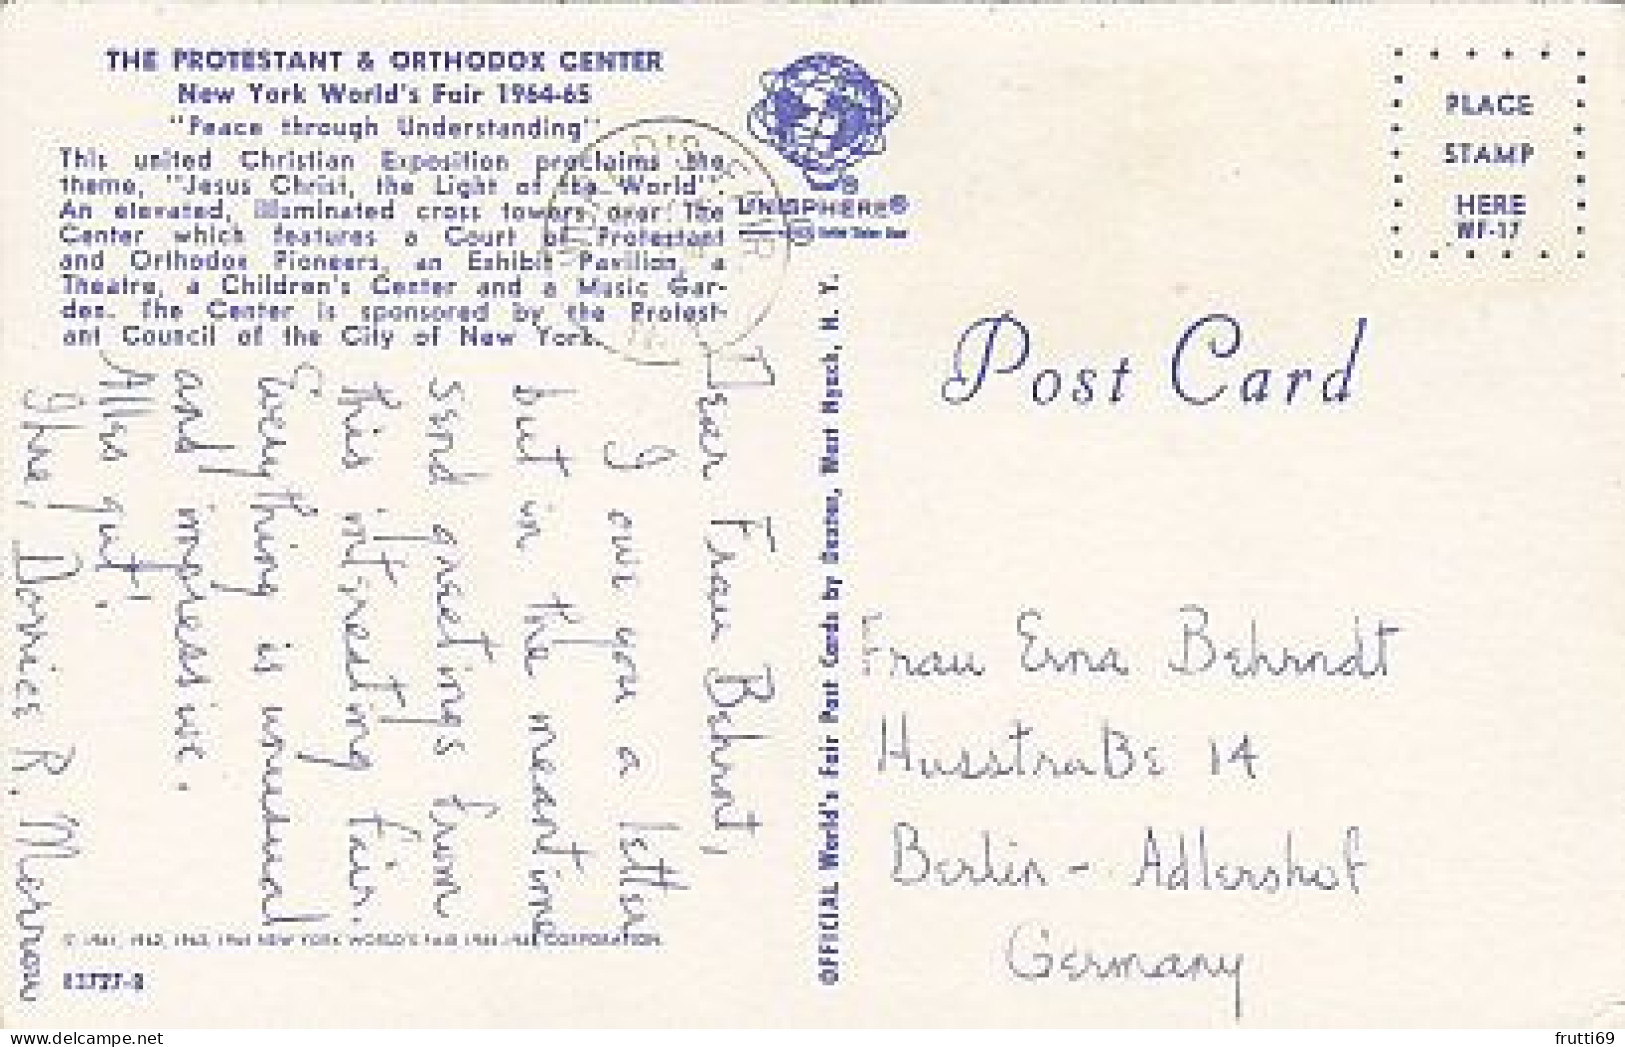 THE PROTESTANT & ORTHODOX CENTER
New York World's Fair 1964-65
"Peace through Understanding"
This united Christian Exposition proclaims the
theme, "Jesus Christ, the Light of the World".
An elevated, illuminated cross towers over The
Center which features a Court of Protestant
and Orthodox Pioneers, an Exhibit Pavilion, a
Theatre, a Children's Center and a Music Gar-
den. The Center is sponsored by the Protest-
ant Council of the City of New York.
UNISPHERE®
PLACE
STAMP
HERE
WF-17
Post Card
OFFICIAL World's Fair Post Cards by Dexter, West Nyack, N. Y.
Dear Frau Behrndt,
I owe you a letter
but in the meantime
send greetings from
this interesting fair.
Everything is unusual
and impressive.
Alles gut!
Ihre, Dorries R. Merrow
Frau Erna Behrndt
Husstraße 14
Berlin - Adlershof
Germany
© 1961, 1962, 1963, 1964 NEW YORK WORLD'S FAIR 1964-1965 CORPORATION
frutti69